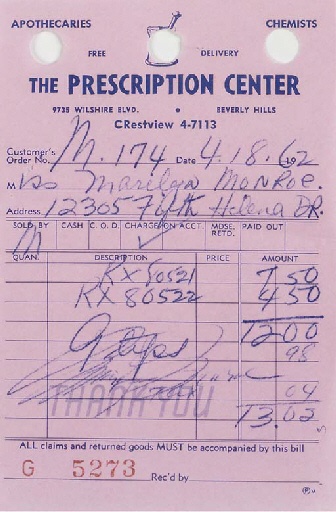 APOTHECARIES CHEMISTS
FREE DELIVERY
THE PRESCRIPTION CENTER
9735 WILSHIRE BLVD. • BEVERLY HILLS
CRestview 4-7113
Customer's Order No. M.174 Date 4.18.62 192
Miss Marilyn MONROE.
Address 12305 Fifth Helena DR.
SOLD BY CASH C.O.D. CHARGE ON ACCT. MDSE. RETD. PAID OUT
M
QUAN. DESCRIPTION PRICE AMOUNT
RX 80521 7 50
RX 80522 4 50
12 00
98
04
THANK YOU
13.02
ALL claims and returned goods MUST be accompanied by this bill
G 5273 Rec'd by